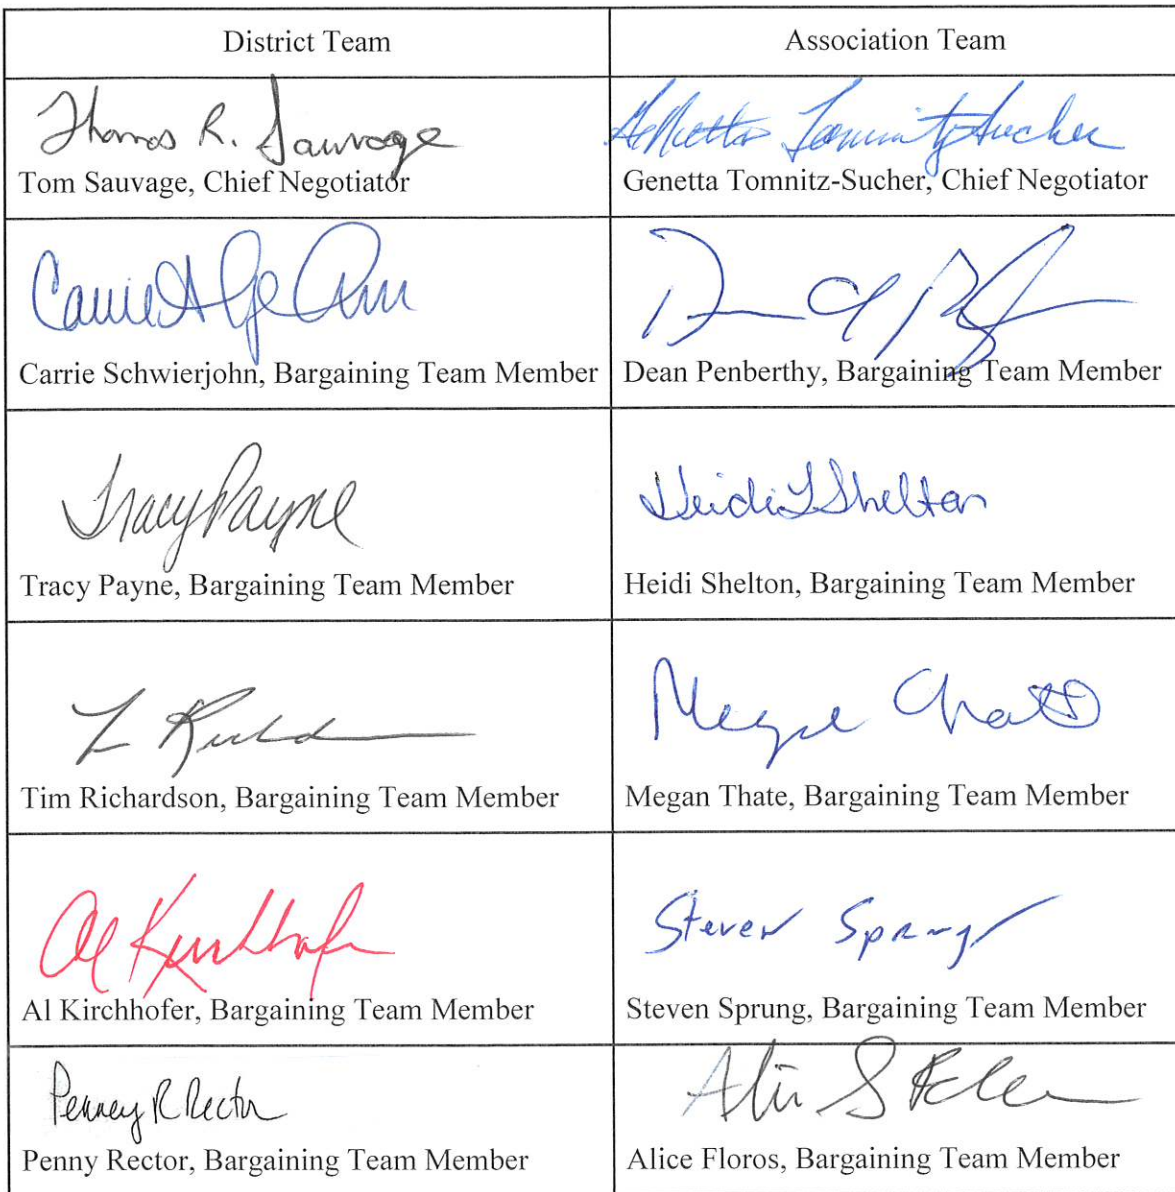 District Team
Association Team
Thomas R. Sauvage
Tom Sauvage, Chief Negotiator
Genetta Tomnitz-Sucher, Chief Negotiator
Carrie
Carrie Schwierjohn, Bargaining Team Member
Dean Penberthy, Bargaining Team Member
Tracy Payne
Tracy Payne, Bargaining Team Member
Heidi L Shelton
Heidi Shelton, Bargaining Team Member
Tim Richardson, Bargaining Team Member
Megan Thate
Megan Thate, Bargaining Team Member
Al Kirchhofer
Al Kirchhofer, Bargaining Team Member
Steven Sprung
Steven Sprung, Bargaining Team Member
Penney R Rector
Penny Rector, Bargaining Team Member
Alice Floros, Bargaining Team Member